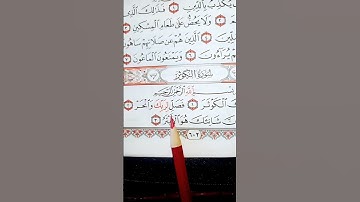 يُكَذِّبُ بِالدِّينِ ۝١ فَذَٰلِكَ الَّذِي
وَلَا يَحُضُّ عَلَىٰ طَعَامِ الْمِسْكِينِ ۝٣
۝٤ الَّذِينَ هُمْ عَن صَلَاتِهِمْ سَاهُونَ
يُرَاءُونَ ۝٦ وَيَمْنَعُونَ الْمَاعُونَ
سُورَةُ الْكَوْثَرِ
اللَّهِ الرَّحْمَٰنِ الرَّحِيمِ
الْكَوْثَرَ ۝١ فَصَلِّ لِرَبِّكَ وَانْحَرْ ۝٢
شَانِئَكَ هُوَ الْأَبْتَرُ ۝٣
٦٠٢